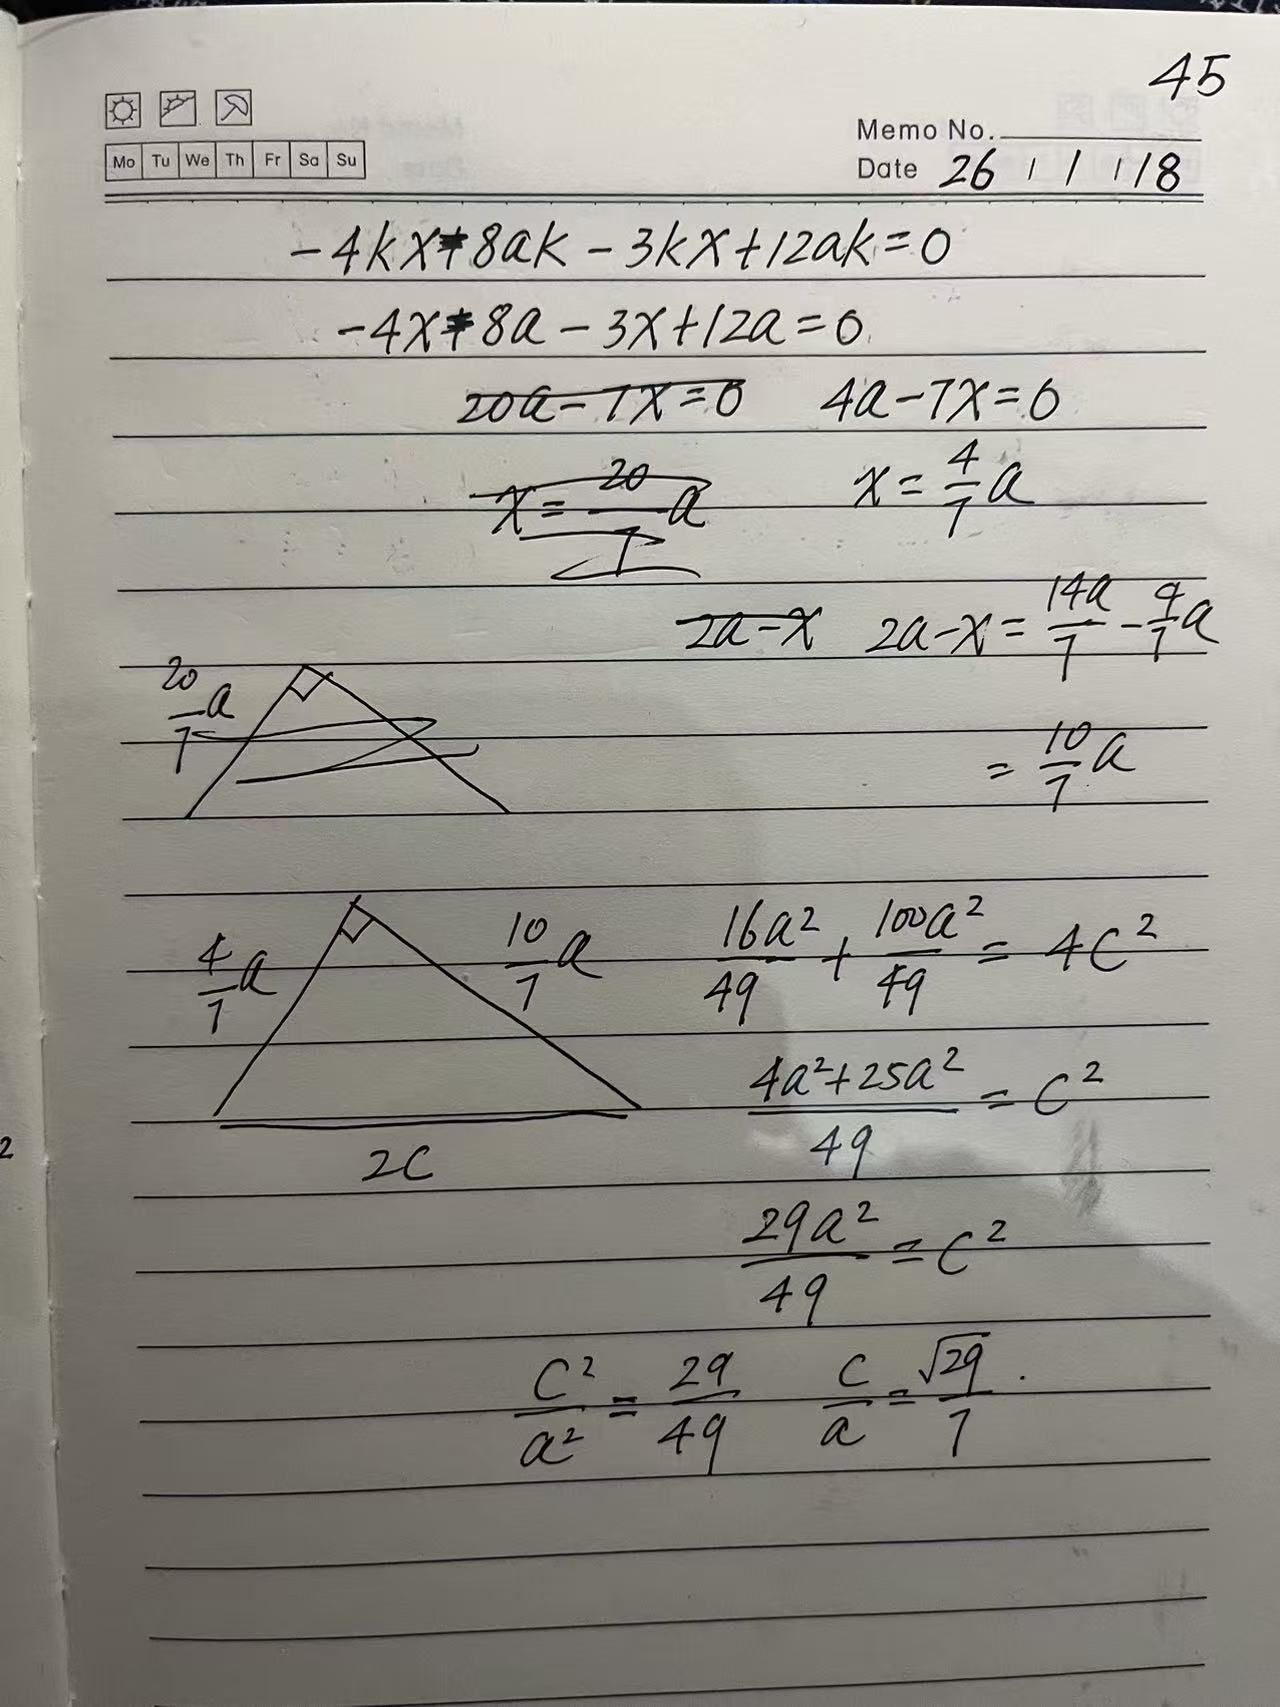 45
Memo No.
Mo Tu We Th Fr Sa Su
Date 26 / 1 / 18
-4kx-8ak-3kx+12ak=0
-4x-8a-3x+12a=0
20a-7x=0 4a-7x=0
x=20/7a x=4/7a
2a-x 2a-x=14a/7-4/7a
20/7a
=10/7a
4/7a 10/7a 16a²/49+100a²/49=4c²
4a²+25a²/49=c²
2c
29a²/49=c²
c²/a²=29/49 c/a=√29/7.
2